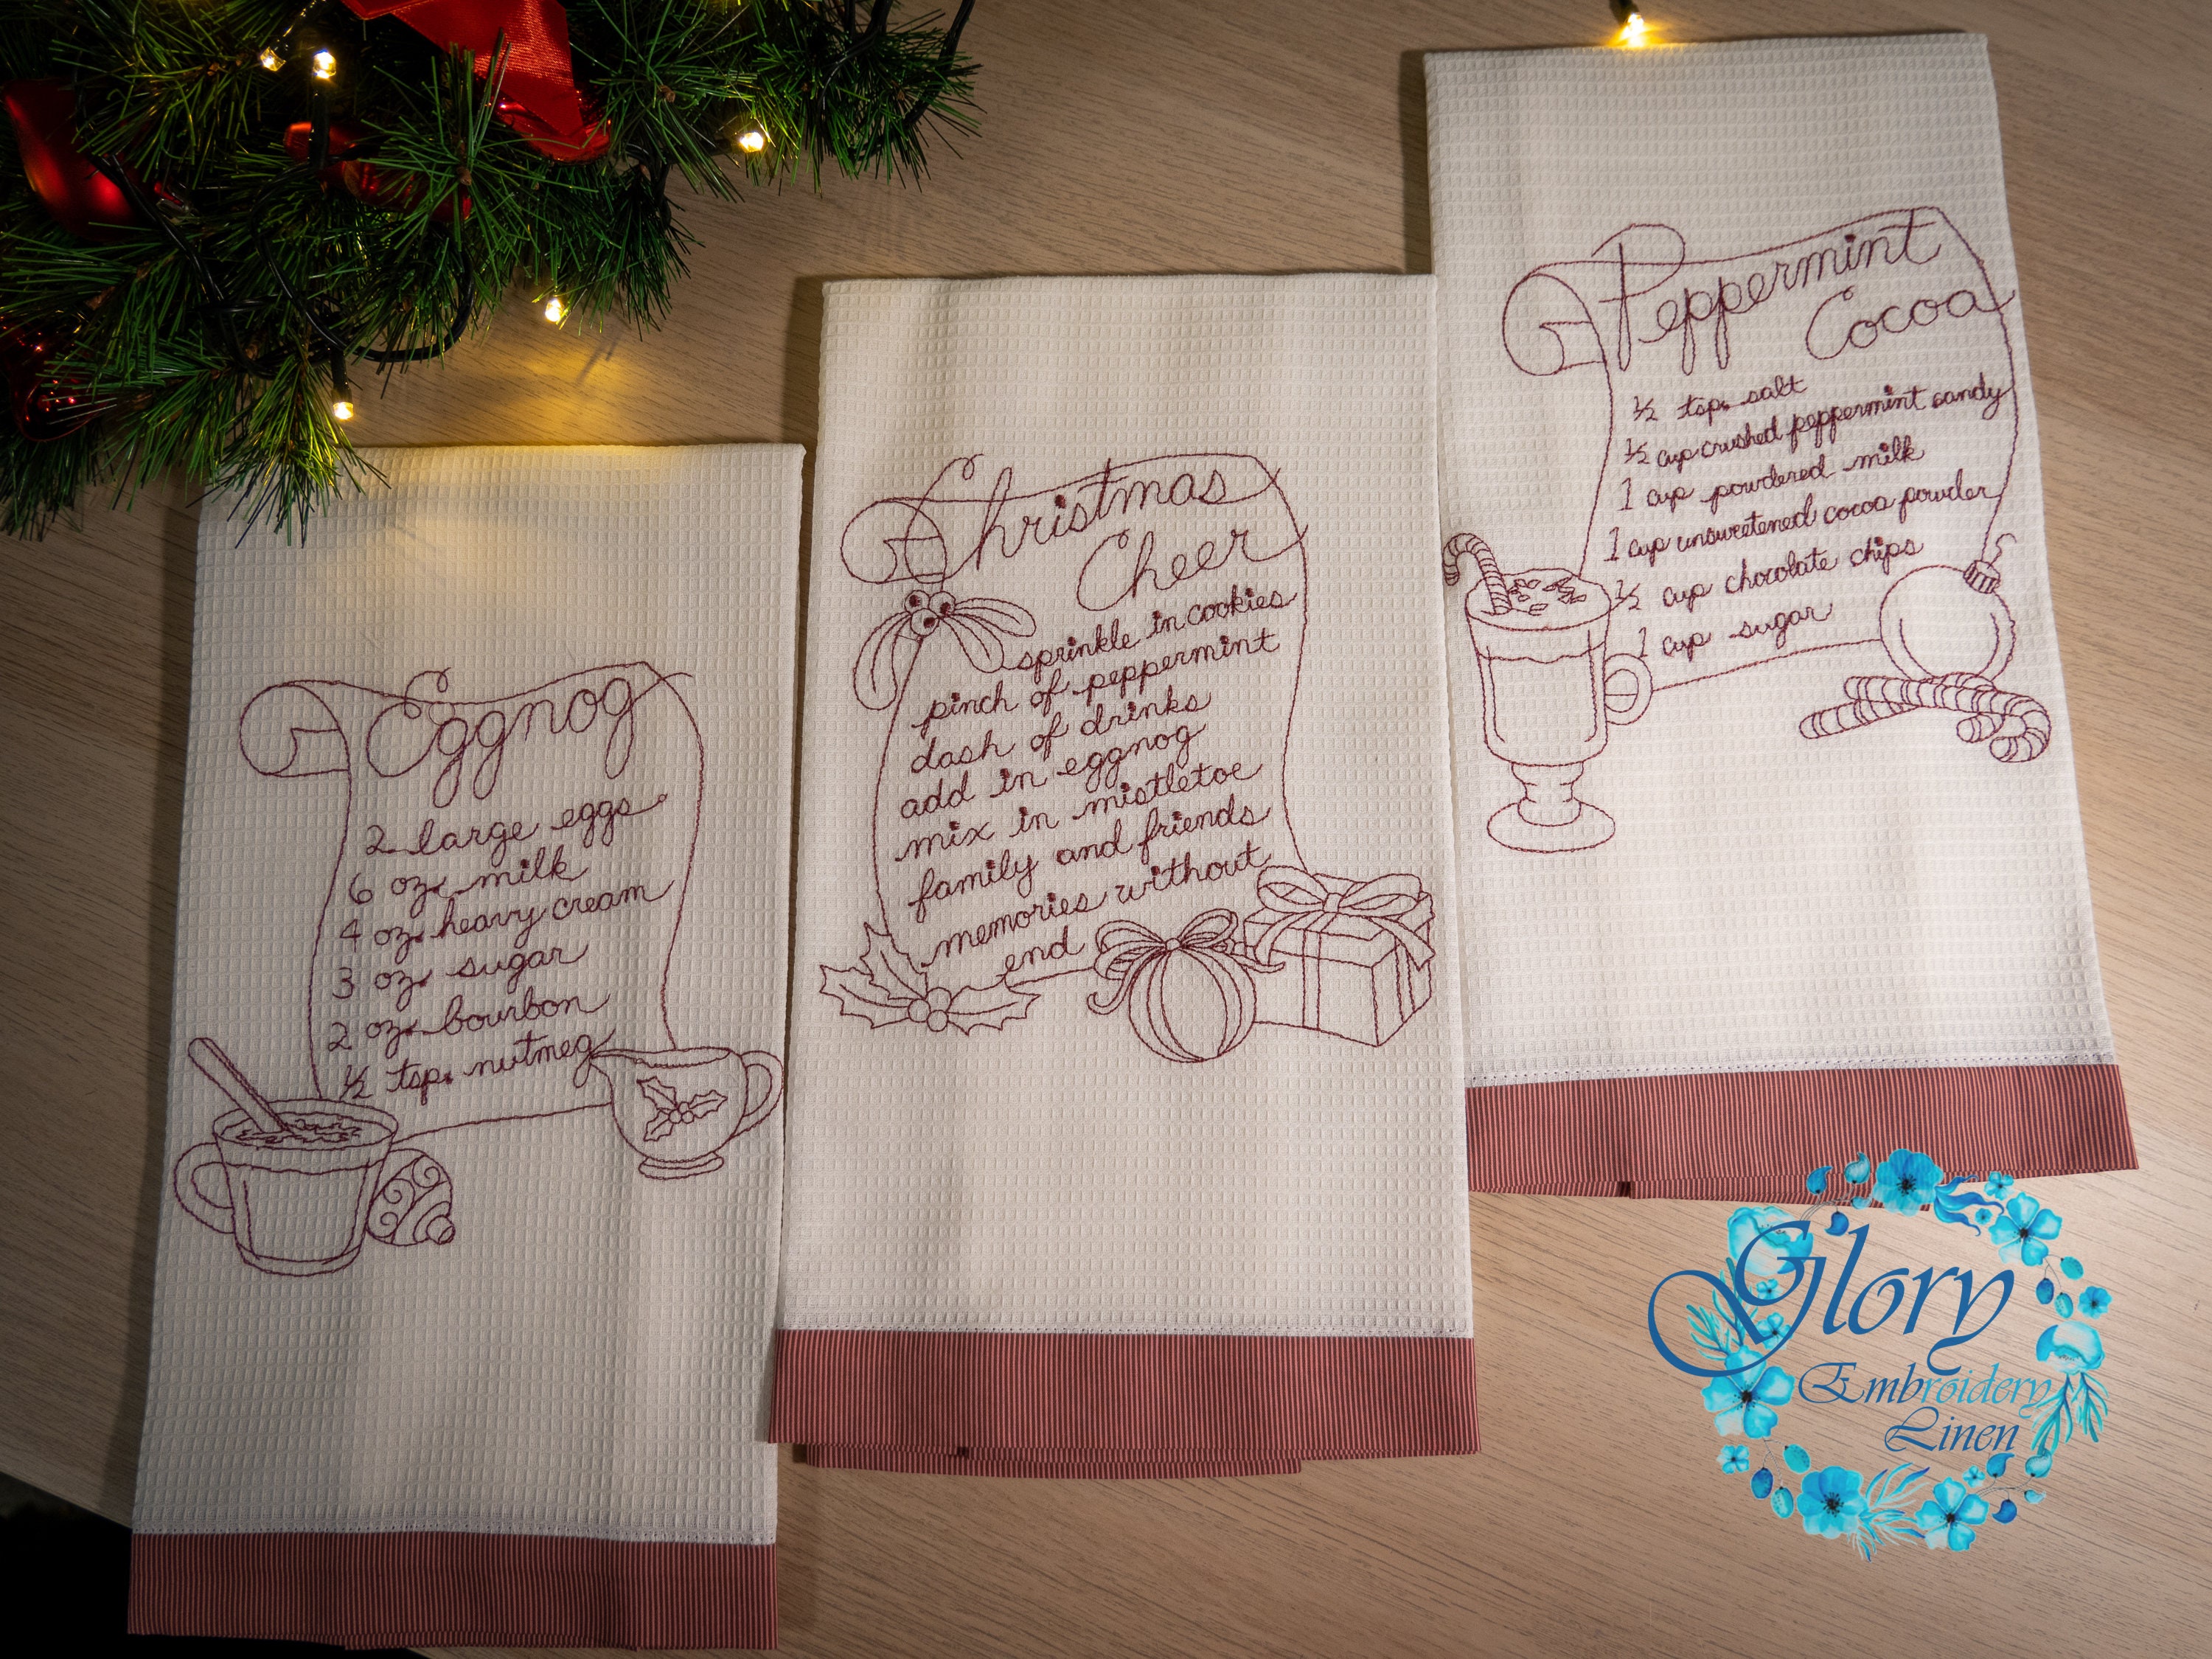 Eggnog
2 large eggs
6 oz. milk
4 oz. heavy cream
3 oz. sugar
2 oz. bourbon
½ tsp. nutmeg
Christmas
Cheer
sprinkle in cookies
pinch of peppermint
dash of drinks
add in eggnog
mix in mistletoe
family and friends
memories without
end
Peppermint
Cocoa
½ tsp. salt
½ cup crushed peppermint candy
1 cup powdered milk
1 cup unsweetened cocoa powder
½ cup chocolate chips
1 cup sugar
Glory
Embroidery
Linen